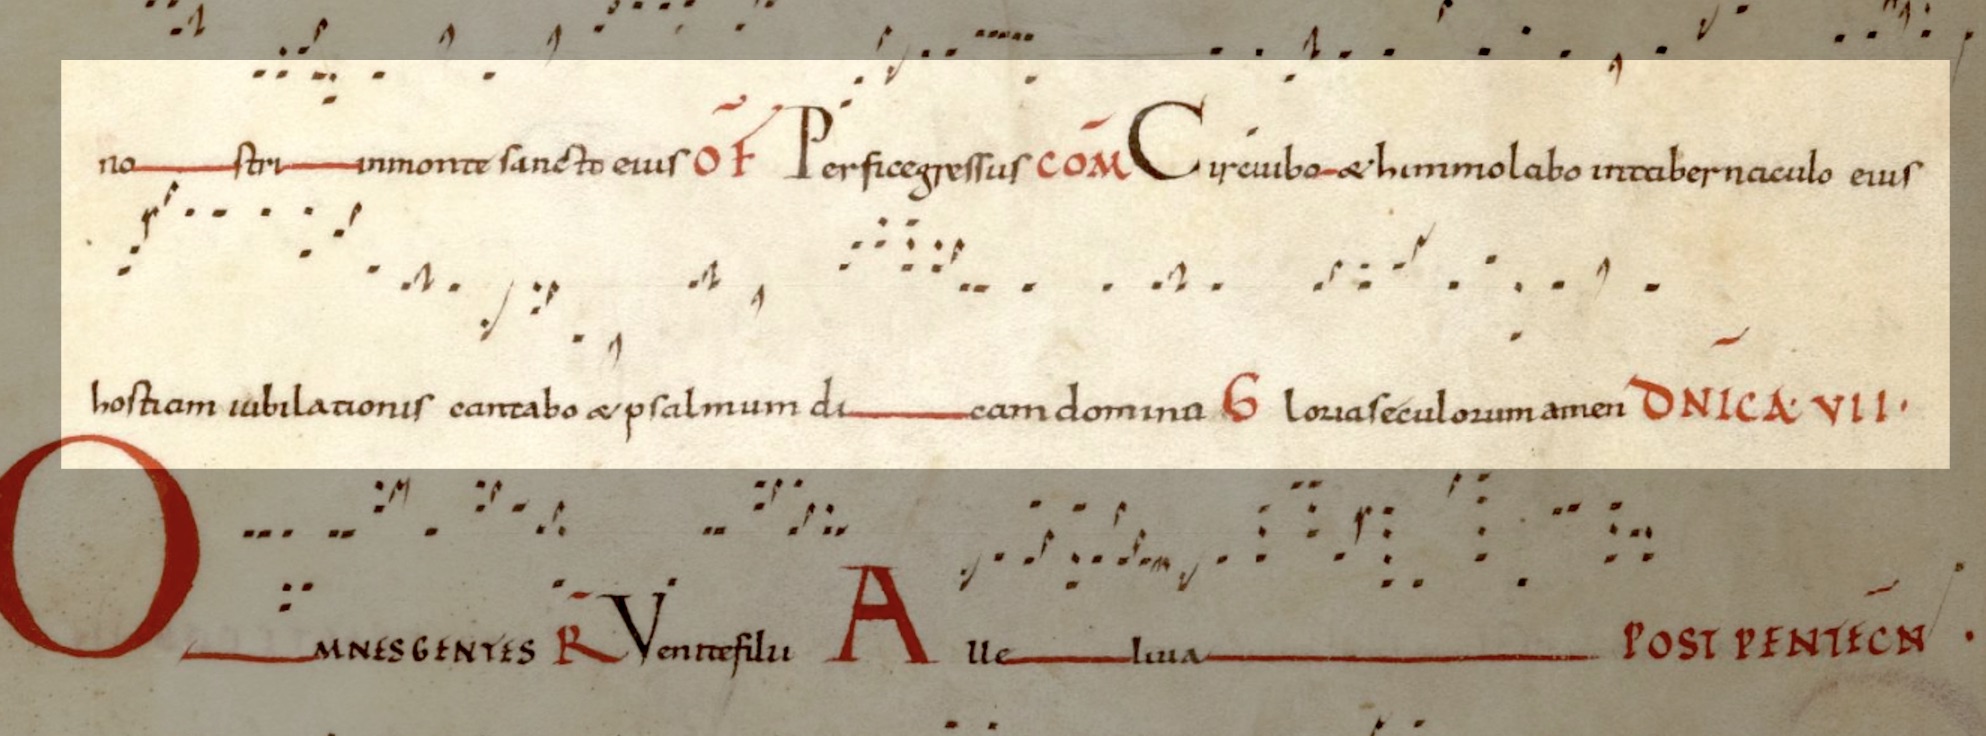 no stri inmonte sancto eius OF Perficegressus COM Circuibo & himmolabo intabernaculo eius
hostiam iubilationis cantabo & psalmum di cam domina G loria seculorum amen DNICA VII.
OMNES GENTES R Venitefilii Alle luia POST PENTECN